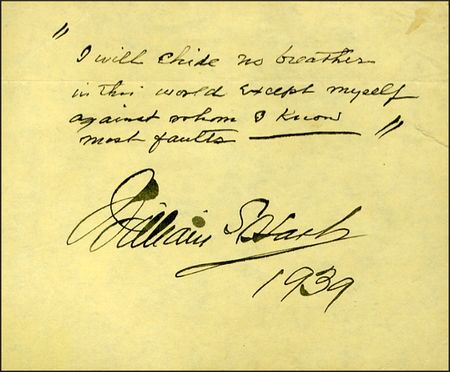 "I will chide no breather
in this world Except myself
against whom I Know
most faults "
William S. Hart
1939